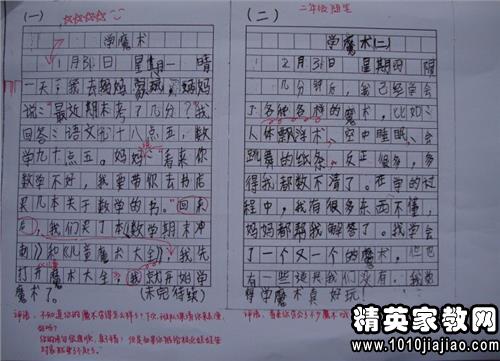 (一)
学魔术
1月31日 星期一 晴
说："最效期末考了几分？"我
回答：语文九十八点五，数
学九十点五。妈妈：看来你
数学不好，我要带你去书店
买几本关于数学的书。"回来
后，我们买了本《数学期末冲
刺》和《儿童魔术大全》，我先
打开魔术大全，我就开始学
魔术了。(未完待续)
(二)
二年级 随笔
学魔术(二)
2月31日 星期四 阴
几分钟后，我已经学会
了各种各样的魔术，比如：
人体飘浮术、空中睡眠、会
跳舞的纸条，反正很多，多
得我都数不清了。在学的过
程中，我有很多东西不懂，
妈妈都帮我解答了。我学会
了一个又一个的魔术，但也
有一些道具我们没有，我觉
得学魔术真好玩！
精英家教网
www.1010jiajiao.com